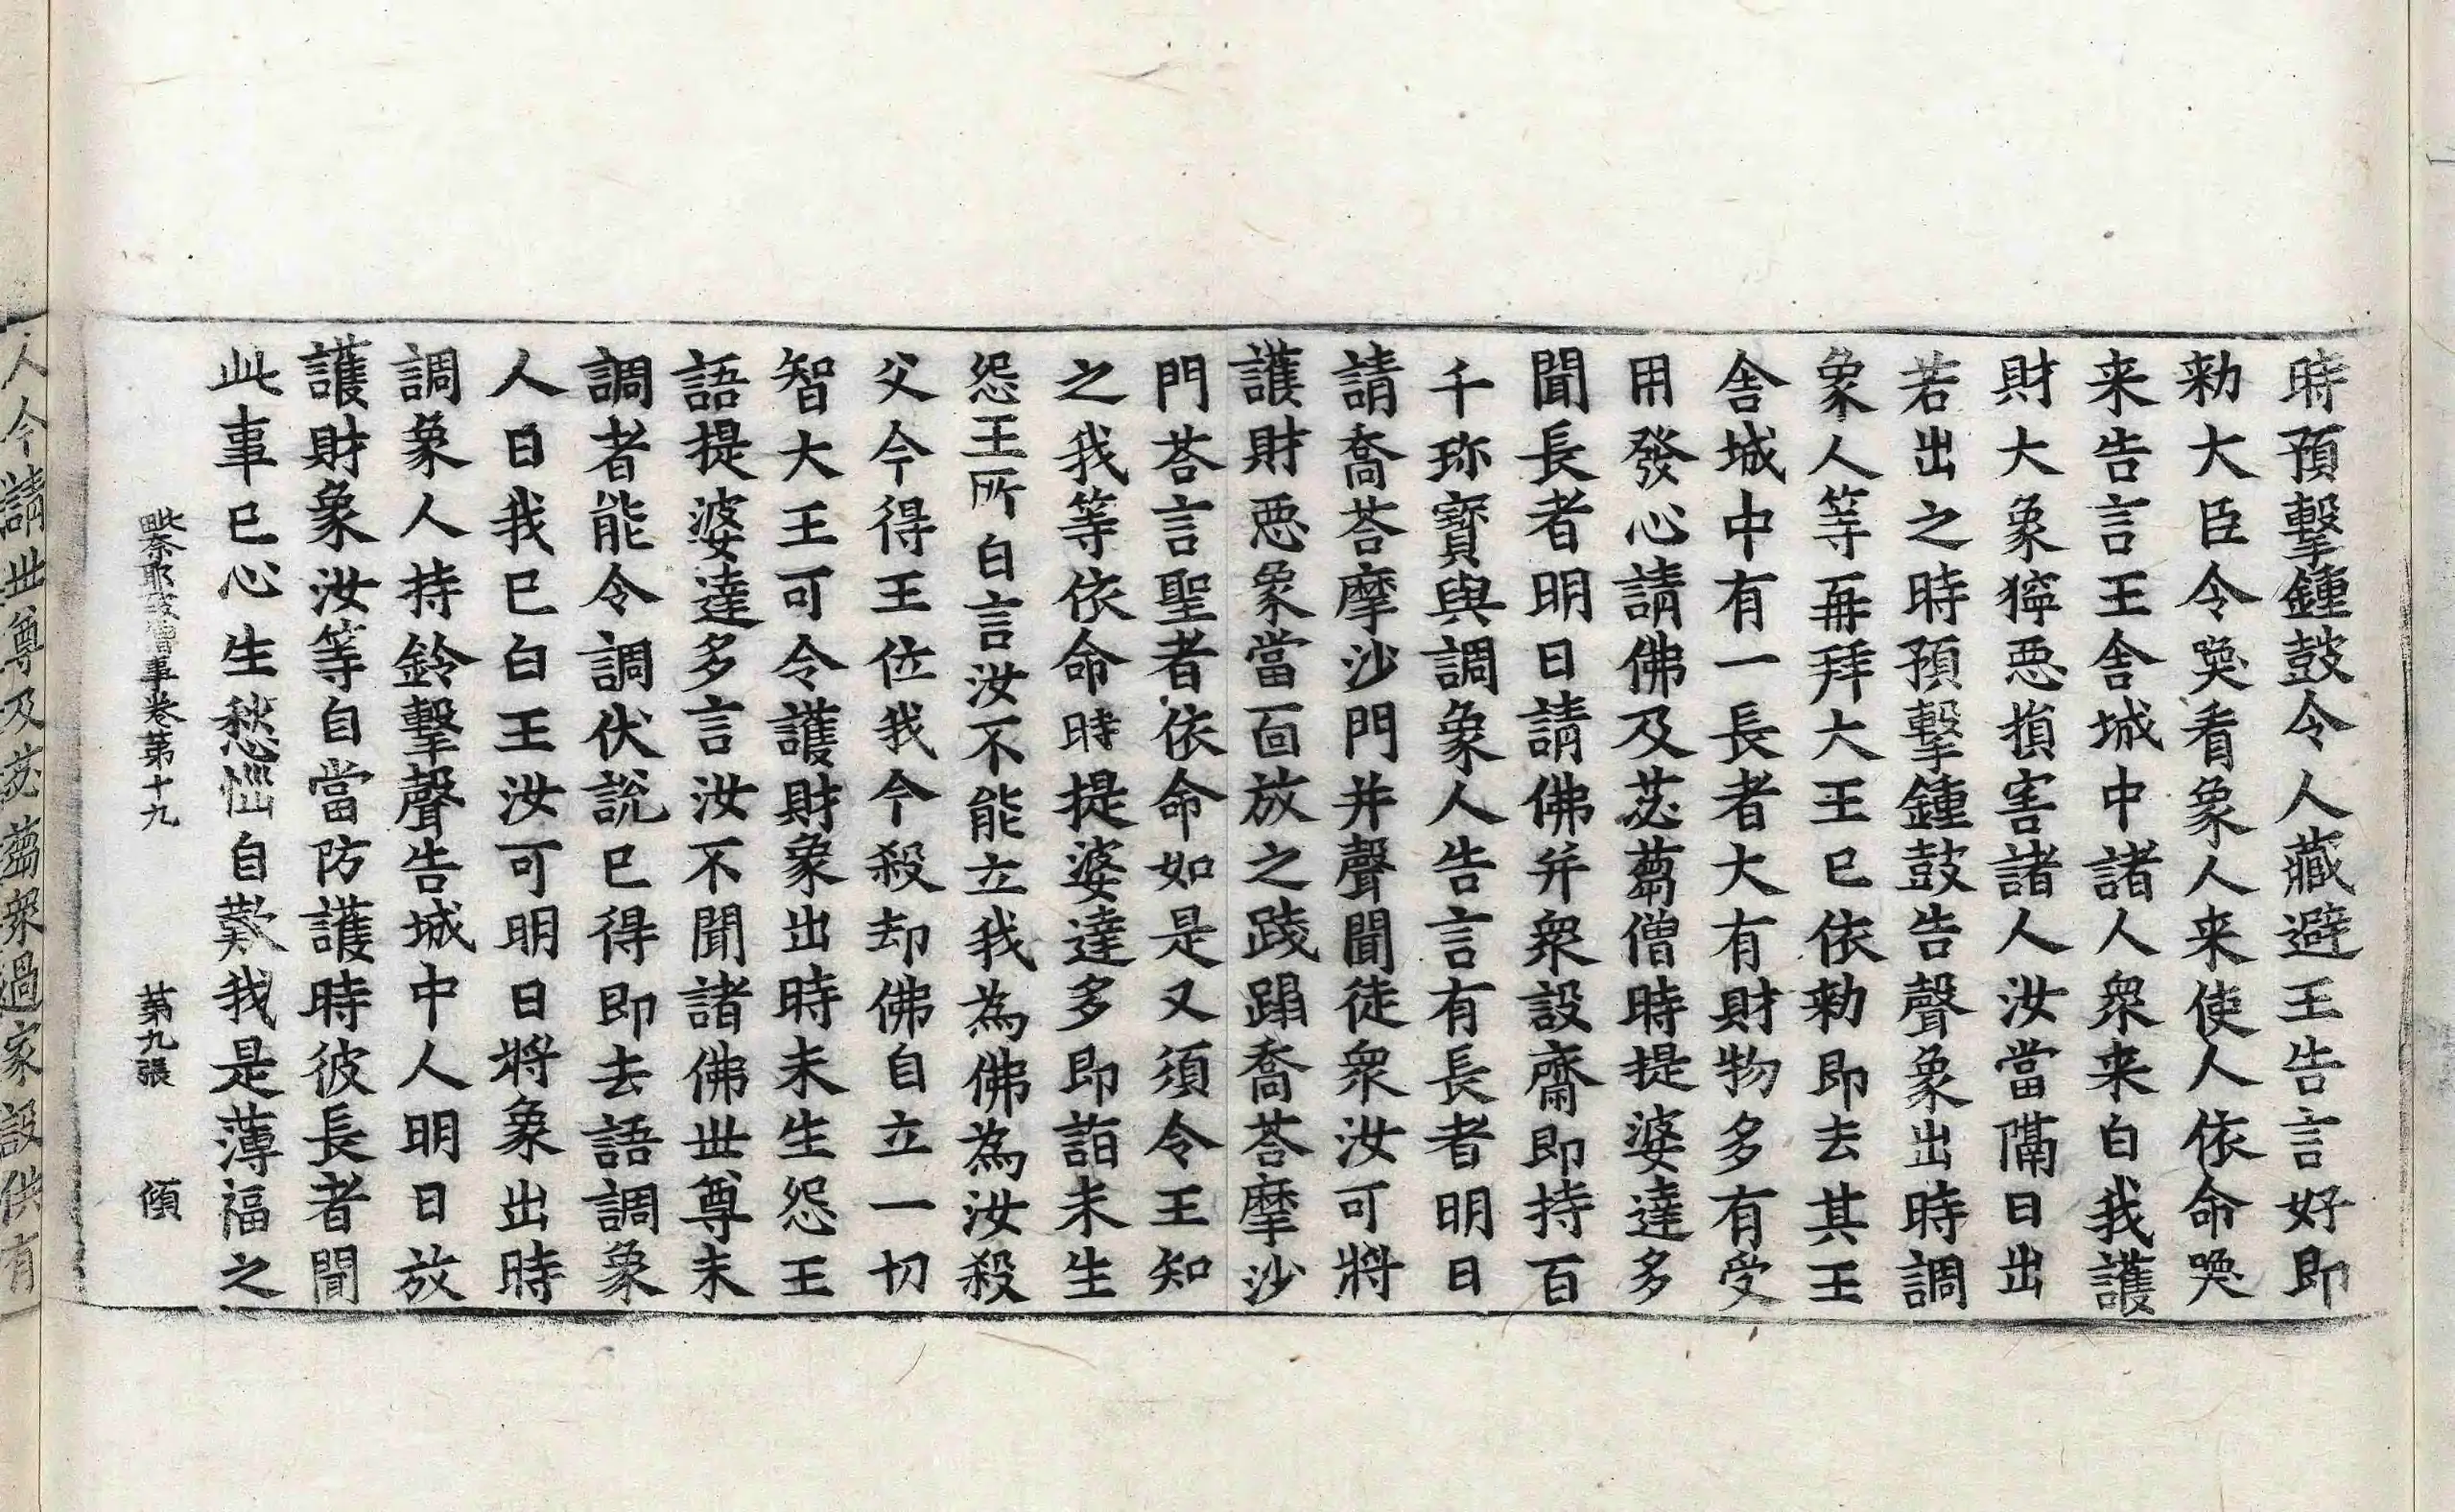 時預擊鍾鼓令人藏避王告言好即
勑大臣令喚看象人来使人依命喚
来告言王舍城中諸人衆来白我護
財大象獰惡損害諸人汝當隔日出
若出之時預擊鍾鼓告聲象出時調
象人等再拜大王已依勑即去其王
舍城中有一長者大有財物多有受
用發心請佛及苾蒭僧時提婆達多
聞長者明日請佛并衆設齋即持百
千珎寶與調象人告言有長者明日
請喬荅摩沙門并聲聞徒衆汝可將
護財惡象當面放之踐蹋喬荅摩沙
門荅言聖者依命如是又須令王知
之我等依命時提婆達多即詣未生
怨王所白言汝不能立我為佛為汝殺
父今得王位我今殺却佛自立一切
智大王可令護財象出時未生怨王
語提婆達多言汝不聞諸佛世尊未
調者能令調伏說已得即去語調象
人曰我已白王汝可明日將象出時
調象人持鈴擊聲告城中人明日放
護財象汝等自當防護時彼長者聞
此事已心生愁惱自歎我是薄福之
毗奈耶破僧事卷第十九 第九張 傾
人今請世尊及苾蒭衆過家設供有